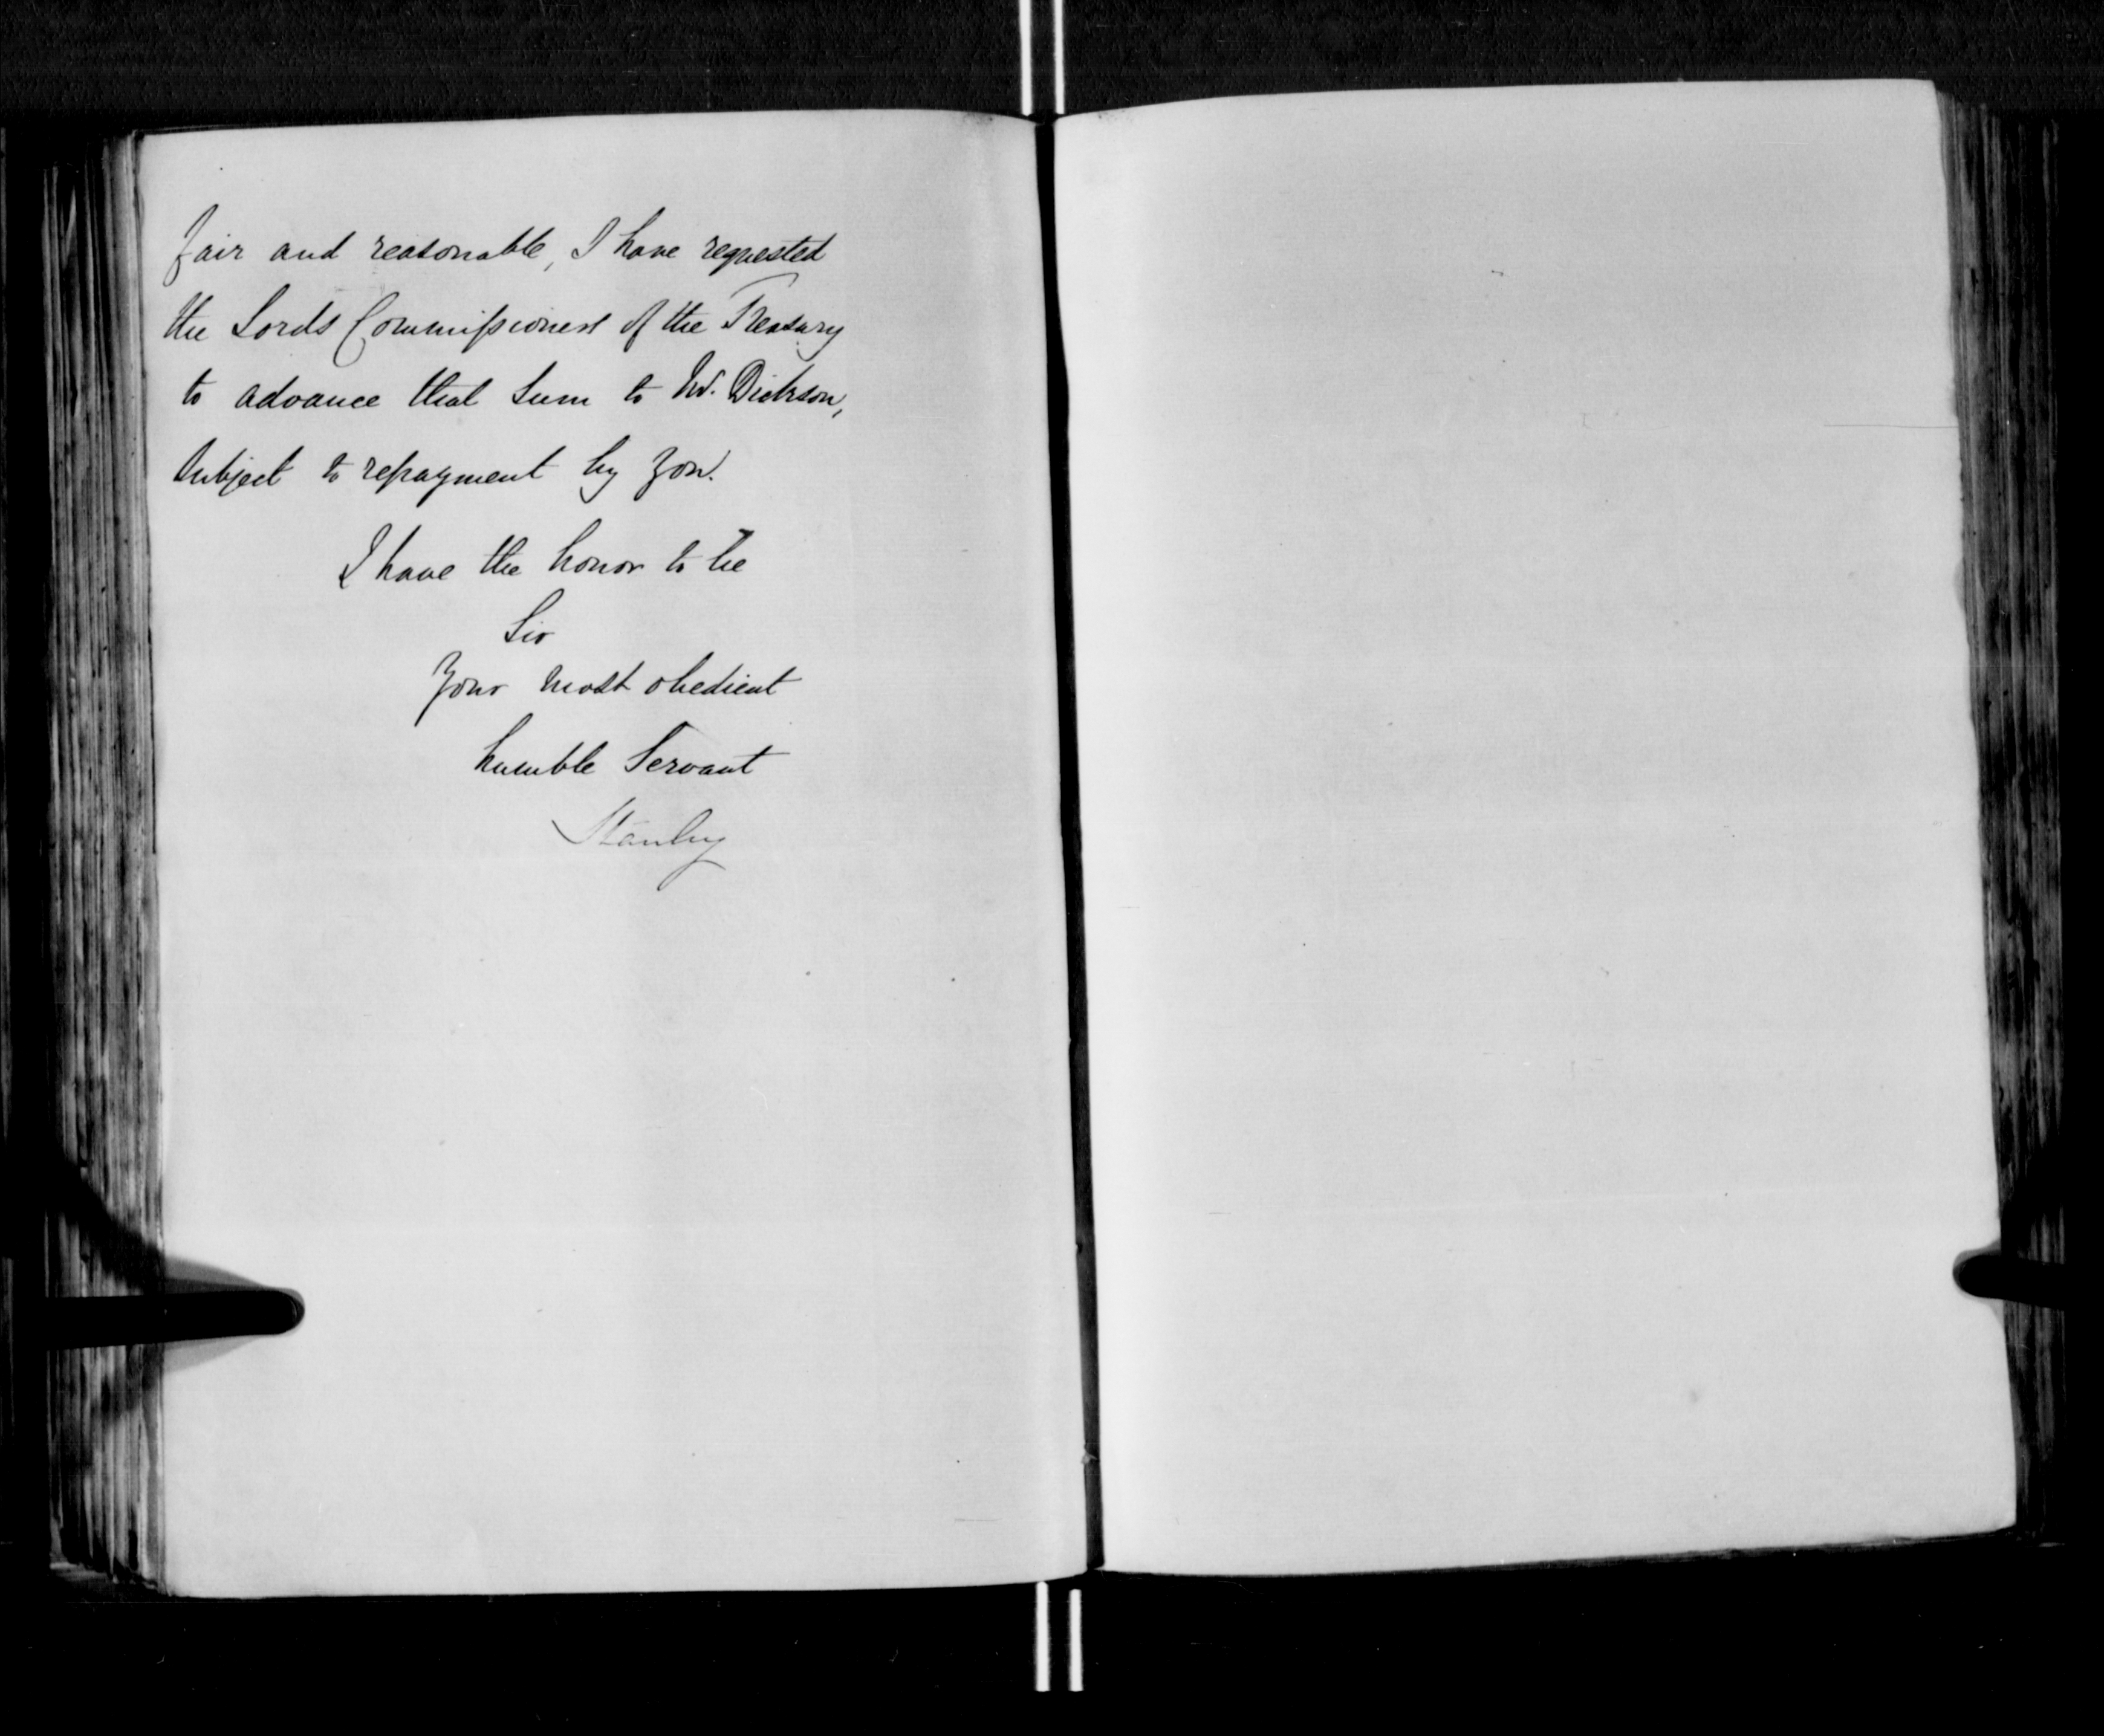 fair and reasonable, I have requested
the Lords Commissioners of the Treasury
to advance that Sum to Mr. Dickson,
Subject to repayment by you.
I have the honor to be
Sir
Your most obedient
humble Servant
Stanley